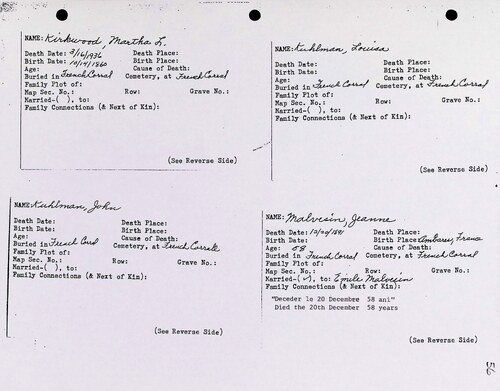 NAME: Kirkwood, Martha L.
Death Date: 3/16/1936 Death Place:
Birth Date: 10/14/1860 Birth Place:
Age: Cause of Death:
Buried in French Corral Cemetery, at French Corral
Family Plot of:
Map Sec. No.: Row: Grave No.:
Married-( ), to:
Family Connections (& Next of Kin):
(See Reverse Side)
NAME: Kuhlman, Louisa
Death Date: Death Place:
Birth Date: Birth Place:
Age: Cause of Death:
Buried in French Corral Cemetery, at French Corral
Family Plot of:
Map Sec. No.: Row: Grave No.:
Married-( ), to:
Family Connections (& Next of Kin):
(See Reverse Side)
NAME: Kuhlman, John
Death Date: Death Place:
Birth Date: Birth Place:
Age: Cause of Death:
Buried in French Cemetery, at French
Family Plot of:
Map Sec. No.: Row: Grave No.:
Married-( ), to:
Family Connections (& Next of Kin):
(See Reverse Side)
NAME: Malvesin, Jeanne
Death Date: 12/20/1891 Death Place:
Birth Date: Birth Place: Ambares, France
Age: 58 Cause of Death:
Buried in French Corral Cemetery, at French Corral
Family Plot of:
Map Sec. No.: Row: Grave No.:
Married-(✓), to: Emile Malvesin
Family Connections (& Next of Kin):
"Deceder le 20 Decembee 58 ani"
Died the 20th December 58 years
(See Reverse Side)